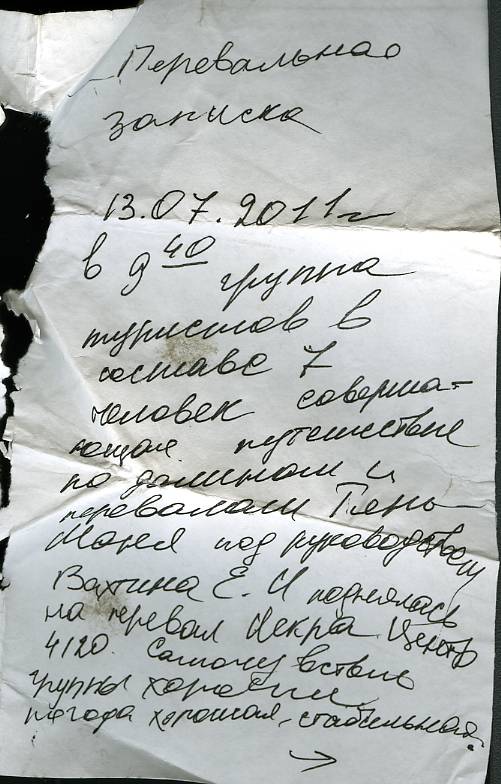 Перевальная
записка
13.07.2011г
в 9 40 группа
туристов в
составе 7
человек соверша-
ющая путешествие
по долинам и
перевалам Тянь-
Шаня под руководством
Вахтина Е. И поднялась
на перевал Искра Центр
4120. Самочувствие
группы хорошее
погода хорошая, стабильная.
→